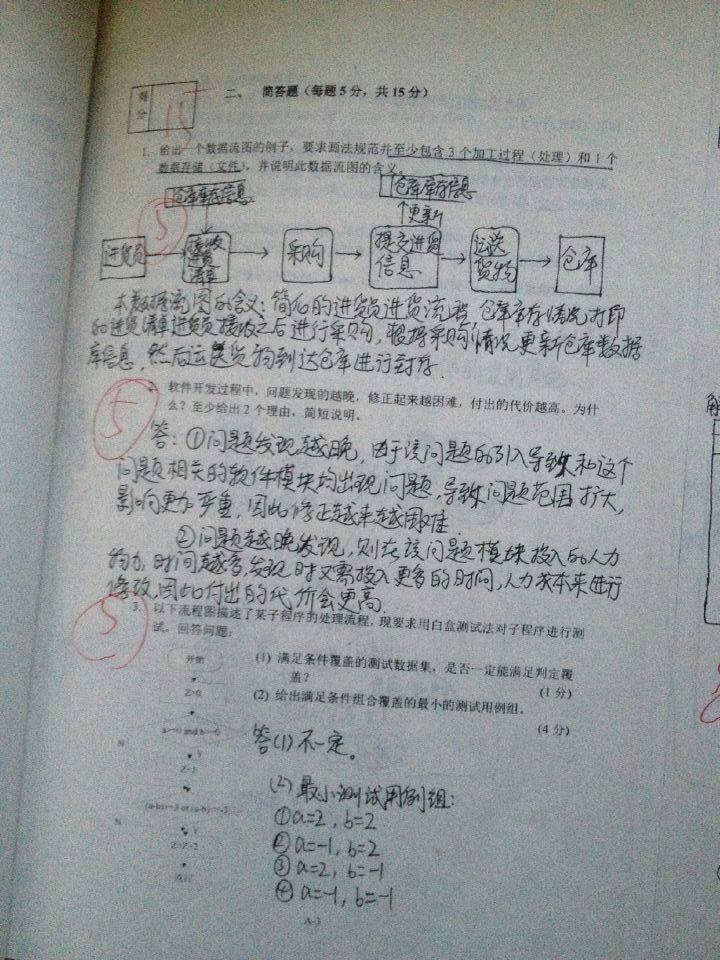 得分
15
二、 简答题（每题5分，共15分）
1. 给出一个数据流图的例子，要求画法规范并至少包含3个加工过程（处理）和1个
数据存储（文件），并说明此数据流图的含义。
仓库库存信息
仓库库存信息
5
更新
进货员
接收进货清单
采购
提交进货信息
运送货物
仓库
本数据流图的含义：简后的进货员进货流程 仓库库存情况打印
的进货清单进货员接收之后进行采购，根据采购情况更新仓库数据
库信息，然后运送货物到达仓库进行封存．
5
2. 软件开发过程中，问题发现的越晚，修正起来越困难，付出的代价越高。为什
么？至少给出2个理由，简短说明。
答：①问题发现越晚，由于该问题的引入导致和这个
问题相关的软件模块均出现问题，导致问题范围扩大，
影响更加严重，因此修正越来越困难
②问题越晚发现，则在该问题模块投入的人力
物力，时间越多，发现时又需投入更多的时间，人力成本来进行
修改，因此付出的代价会更高．
5
3. 以下流程图描述了某子程序的处理流程，现要求用白盒测试法对子程序进行测
试。回答问题：
(1) 满足条件覆盖的测试数据集，是否一定能满足判定覆
盖？ (1 分)
(2) 给出满足条件组合覆盖的最小的测试用例组。
(4 分)
开始
Z=0
N
Y
N
Y
答(1) 不一定。
(2) 最小测试用例组：
①a=2，b=2
②a=-1，b=2
③a=2，b=-1
④a=-1，b=-1
A-3